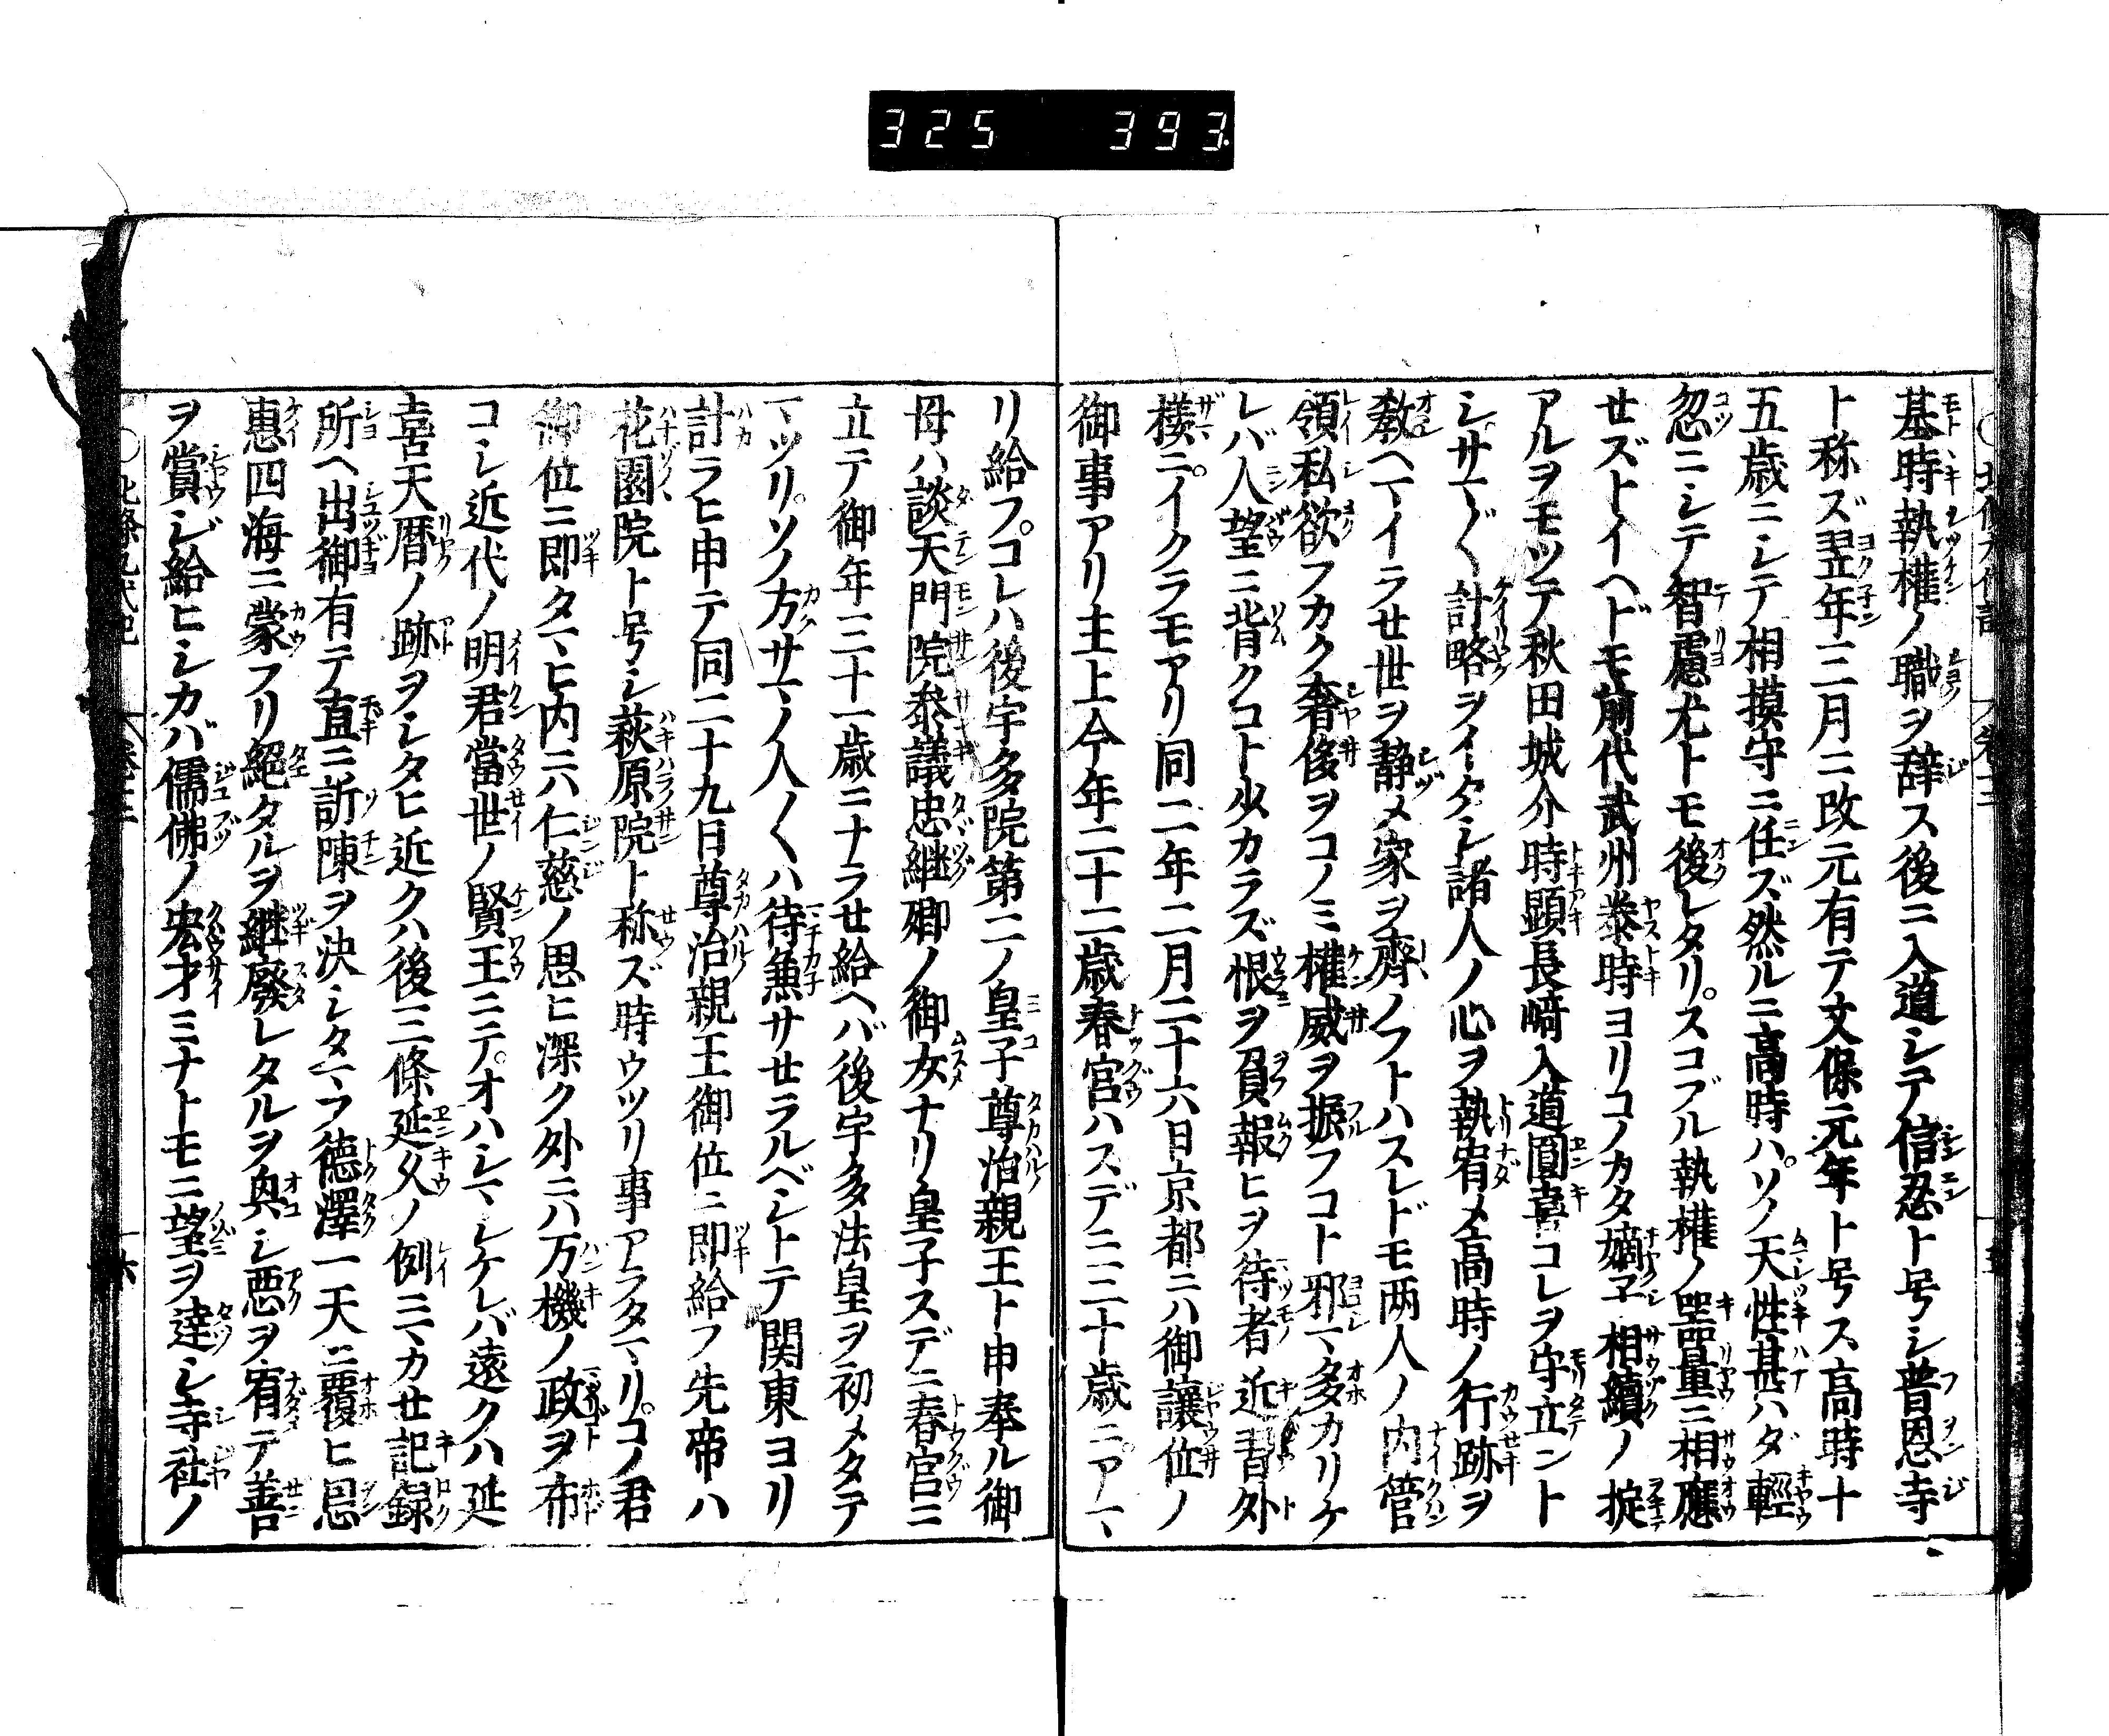 325 393
基時執權ノ職ヲ辞ス後ニ入道シテ信忍ト号シ普恩寺
ト称ズ翌年三月ニ改元有テ文保元年ト号ス高時十
五歳ニシテ相摸守ニ任ズ然ルニ高時ハソノ天性甚ハダ輕
忽ニシテ智慮尤トモ後レタリスコブル執權ノ器量ニ相應
せズトイヘドモ前代武州泰時ヨリコノカタ嫡子相續ノ掟
アルヲモツテ秋田城介時顕長﨑入道圓喜コレヲ守立ント
シサマ〲計略ヲイタシ諸人ノ心ヲ執宥メ高時ノ行跡ヲ
敎ヘマイラせ世ヲ静メ家ヲ齊ノフトハスレドモ两人ノ内管
領私欲フカク奢侈ヲコノミ權威ヲ振フコト邪マ多カリケ
レバ人望ニ背クコト少カラズ恨ヲ負報ヒヲ待者近習外
樣ニイクラモアリ同二年二月二十六日京都ニハ御讓位ノ
御事アリ主上今年二十二歳春宮ハスデニ三十歳ニアマ
リ給フコレハ後宇多院第二ノ皇子尊治親王ト申奉ル御
母ハ談天門院参議忠継卿ノ御女ナリ皇子スデニ春宮ニ
立テ御年三十一歳ニナラせ給ヘバ後宇多法皇ヲ初メタテ
マツリソノ方サマノ人〱ハ待兼サせラルベシトテ関東ヨリ
計ラヒ申テ同二十九日尊治親王御位ニ即給フ先帝ハ
花園院ト号シ萩原院ト称ズ時ウツリ事アラタマリコノ君
御位ニ即タマヒ内ニハ仁慈ノ思ヒ深ク外ニハ万機ノ政ヲ布
コシ近代ノ明君當世ノ賢王ニテオハシマシケレバ遠クハ延
喜天暦ノ跡ヲシタヒ近クハ後三條延久ノ例ニマカせ記録
所ヘ出御有テ直ニ訴陳ヲ決シタマフ徳澤一天ニ覆ヒ恩
惠四海ニ蒙フリ絕タルヲ継廢レタルヲ興シ悪ヲ宥テ善
ヲ賞シ給ヒシカバ儒佛ノ宏才ミナトモニ望ヲ達シ寺社ノ